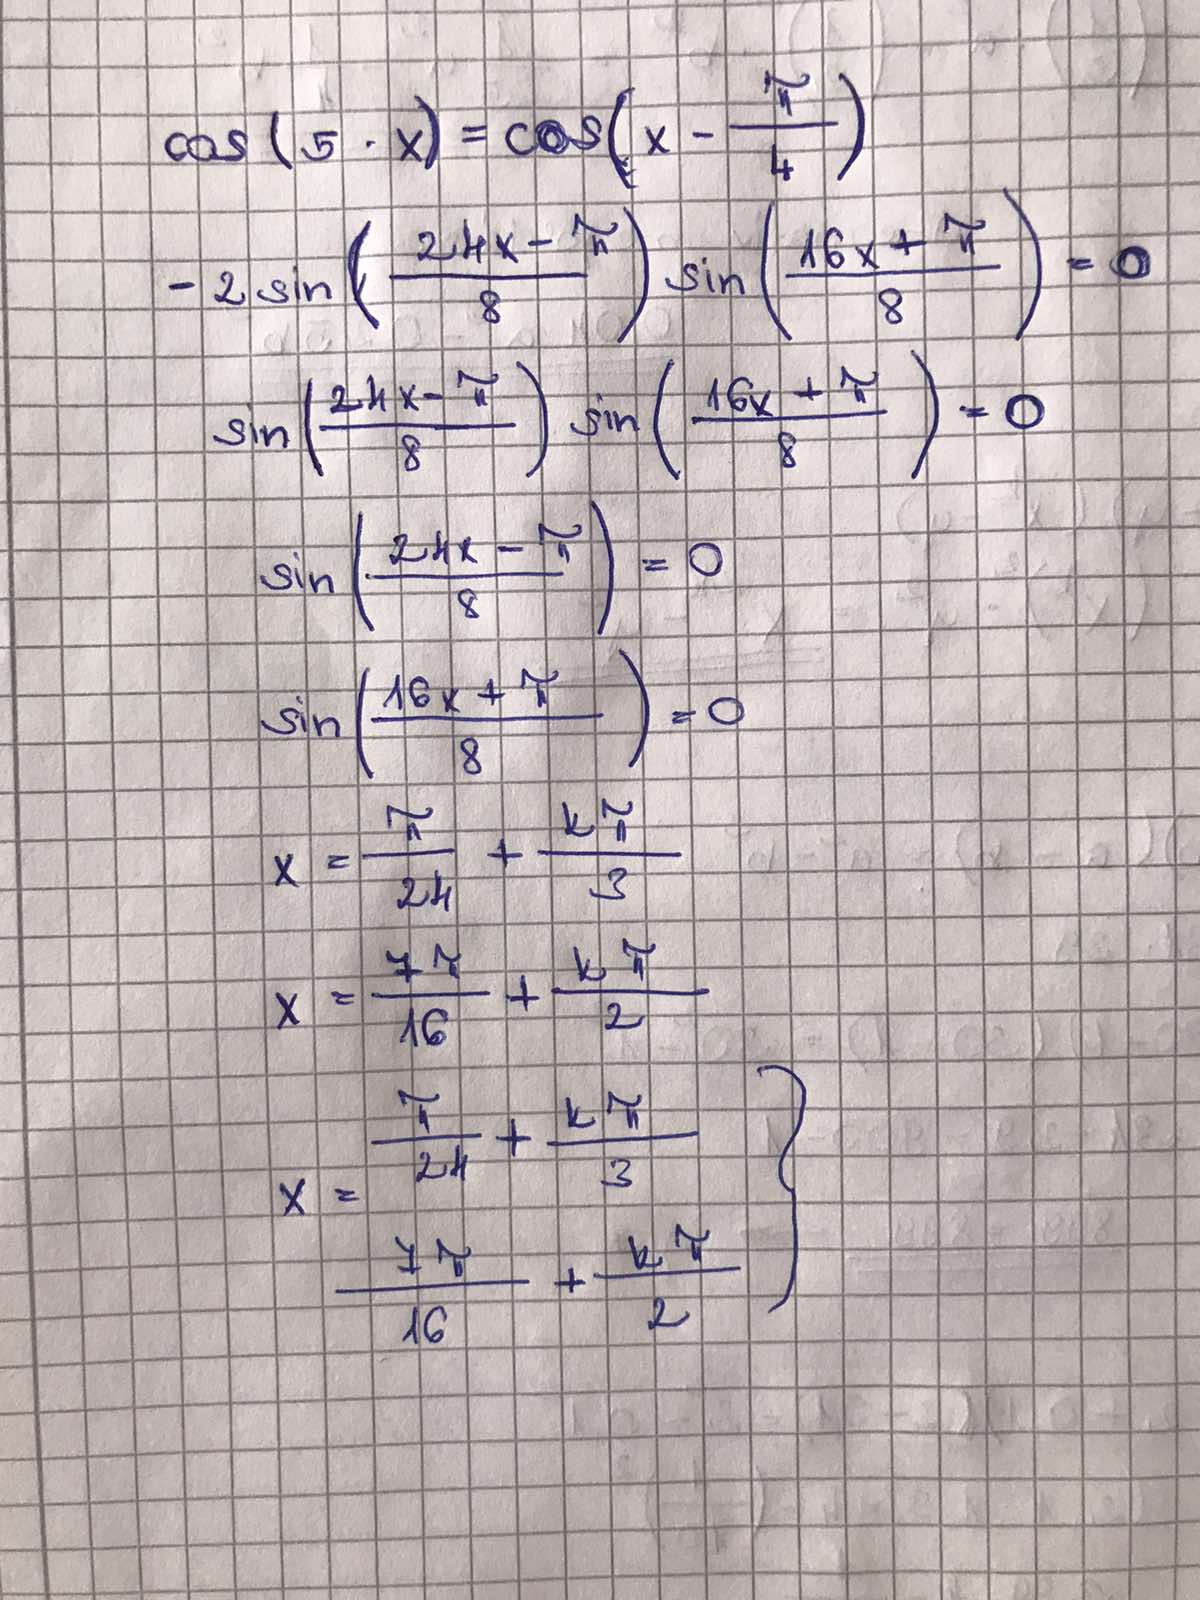 cos(5 · x) = cos(x - π/4)
-2 sin((24x - π)/8) sin((16x + π)/8) = 0
sin((24x - π)/8) sin((16x + π)/8) = 0
sin((24x - π)/8) = 0
sin((16x + π)/8) = 0
x = π/24 + kπ/3
x = 7π/16 + kπ/2
x = { π/24 + kπ/3
7π/16 + kπ/2 }